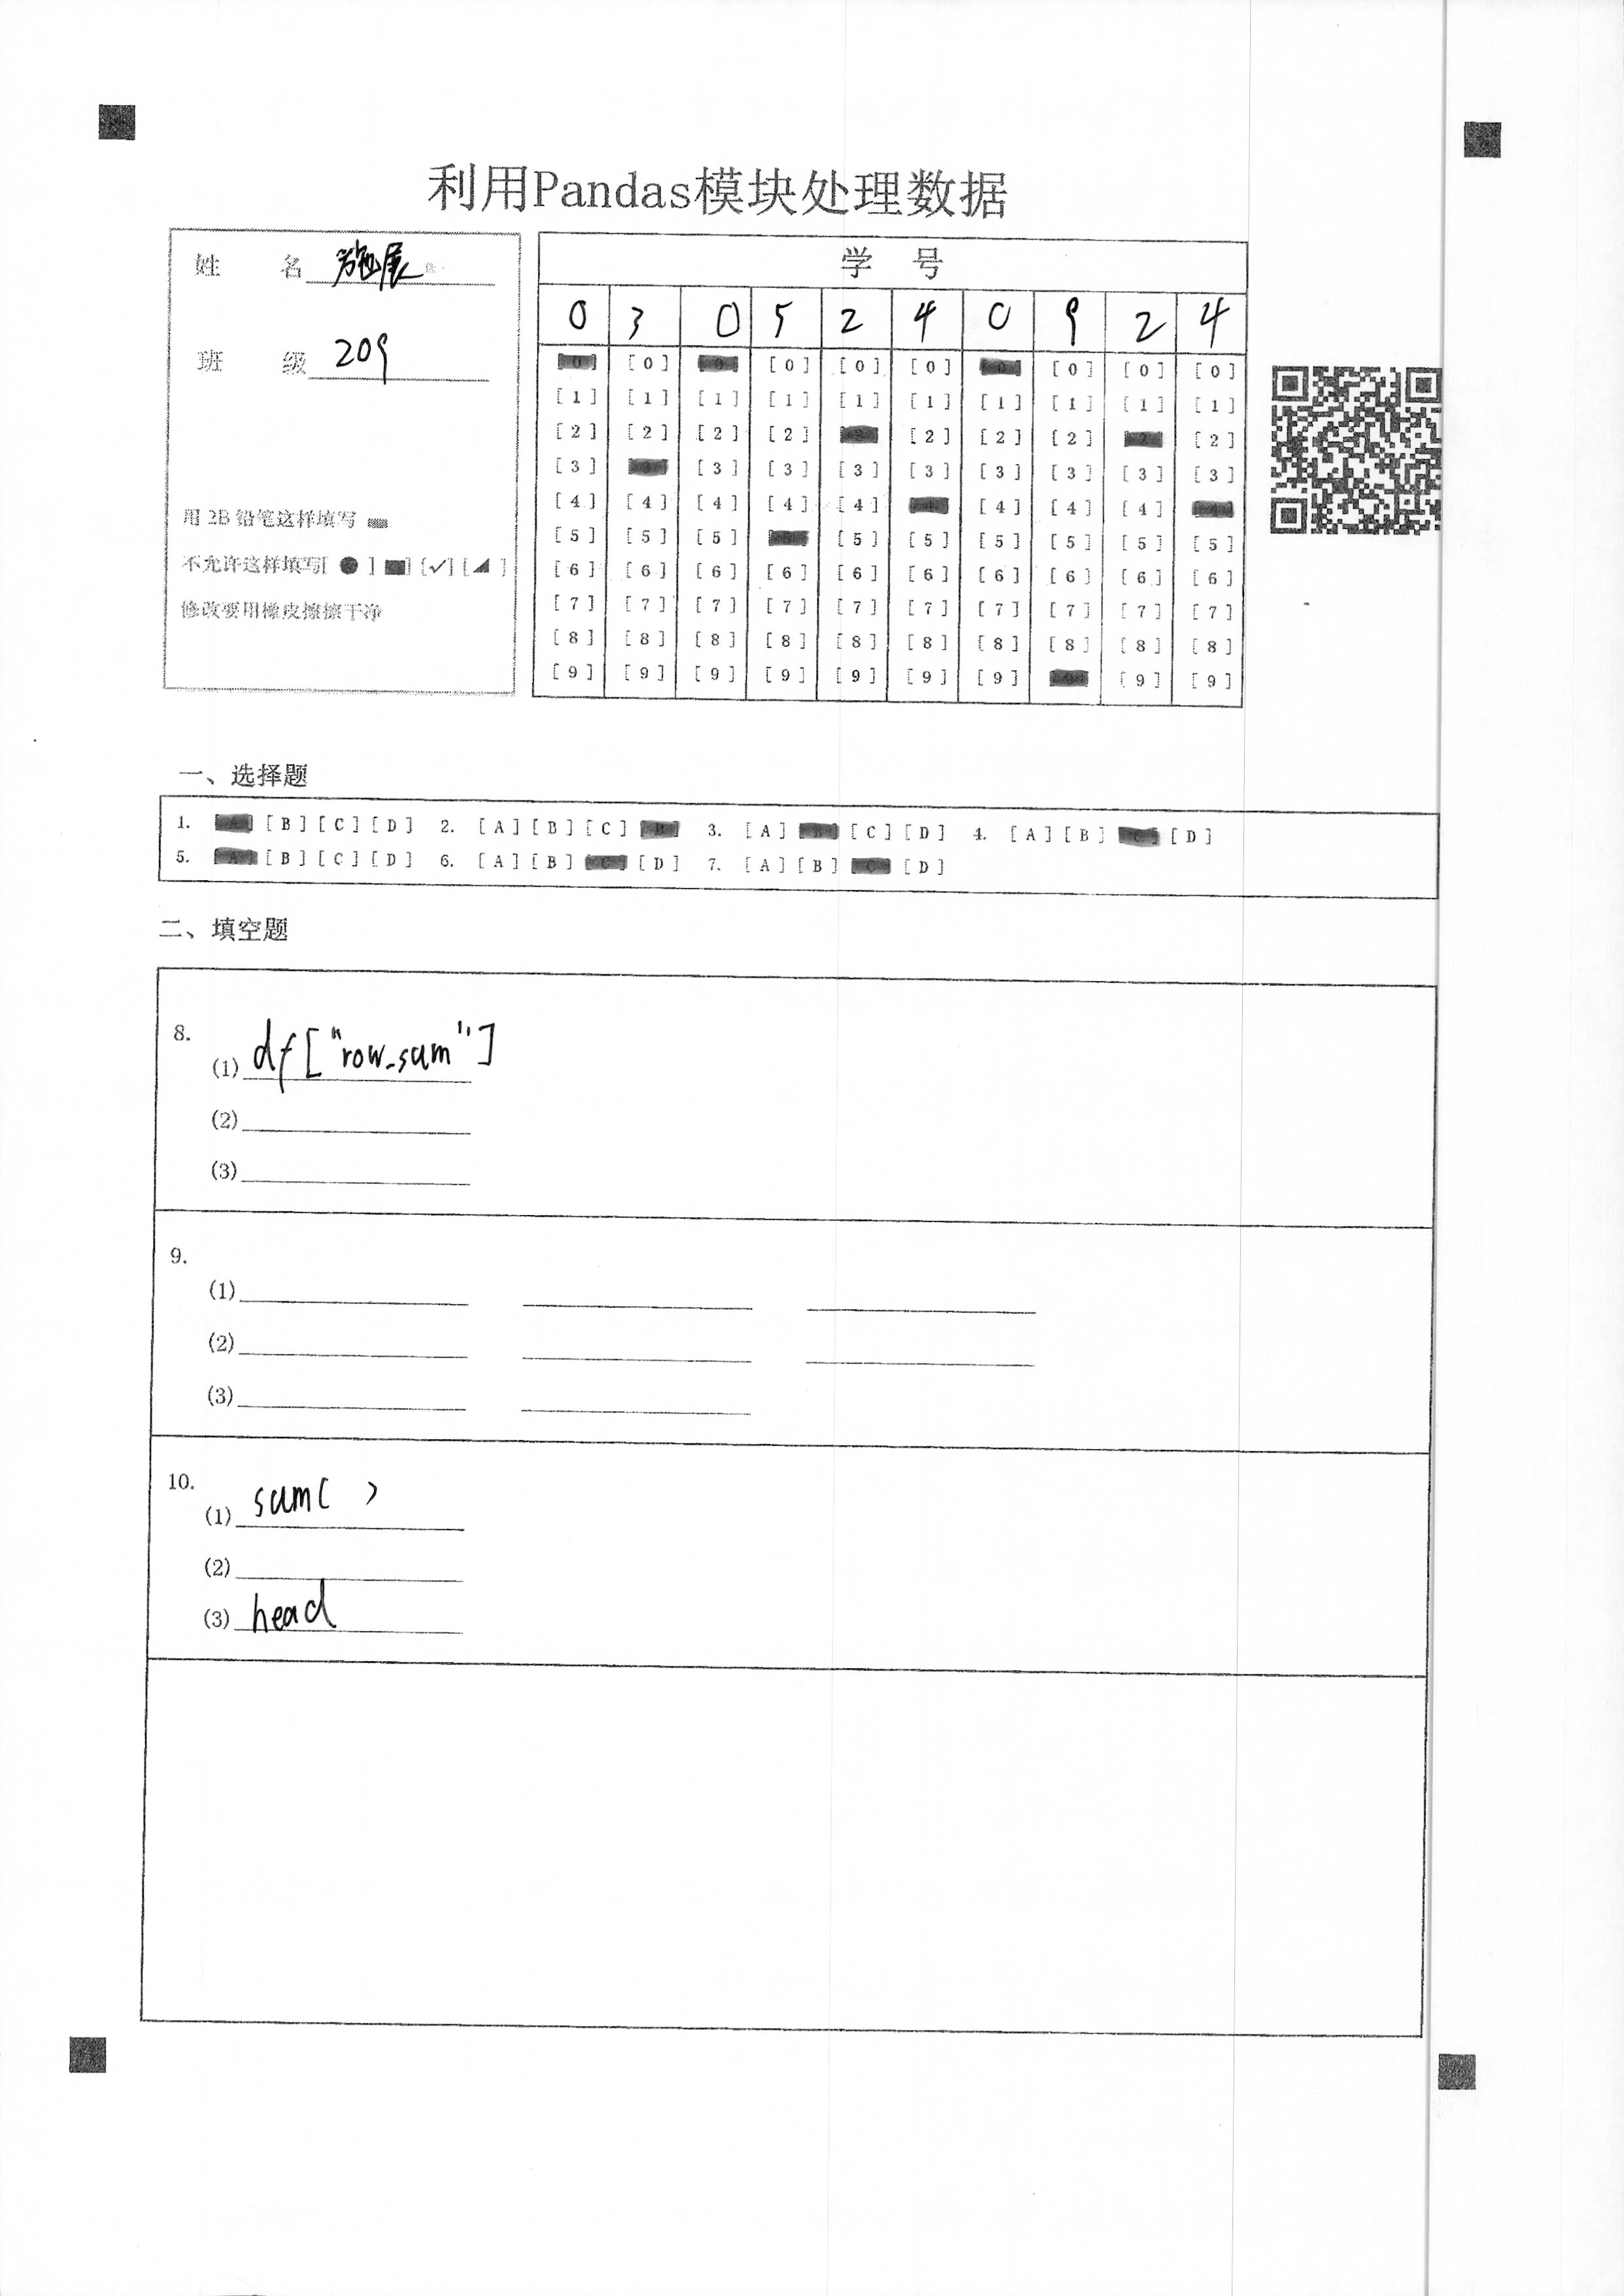 利用Pandas模块处理数据
姓 名 施展
班 级 209
用 2B 铅笔这样填写
不允许这样填写[ ● ] [■] [✓] [◢ ]
修改要用橡皮擦擦干净
学 号
0 3 0 5 2 4 0 9 2 4
[0] [0] [0] [0] [0] [0] [0] [0] [0] [0]
[1] [1] [1] [1] [1] [1] [1] [1] [1] [1]
[2] [2] [2] [2] [2] [2] [2] [2] [2] [2]
[3] [3] [3] [3] [3] [3] [3] [3] [3] [3]
[4] [4] [4] [4] [4] [4] [4] [4] [4] [4]
[5] [5] [5] [5] [5] [5] [5] [5] [5] [5]
[6] [6] [6] [6] [6] [6] [6] [6] [6] [6]
[7] [7] [7] [7] [7] [7] [7] [7] [7] [7]
[8] [8] [8] [8] [8] [8] [8] [8] [8] [8]
[9] [9] [9] [9] [9] [9] [9] [9] [9] [9]
一、选择题
1. [A] [B] [C] [D] 2. [A] [B] [C] [D] 3. [A] [B] [C] [D] 4. [A] [B] [C] [D]
5. [A] [B] [C] [D] 6. [A] [B] [C] [D] 7. [A] [B] [C] [D]
二、填空题
8.
(1) df["row_sum"]
(2)
(3)
9.
(1)
(2)
(3)
10.
(1) sum( )
(2)
(3) head